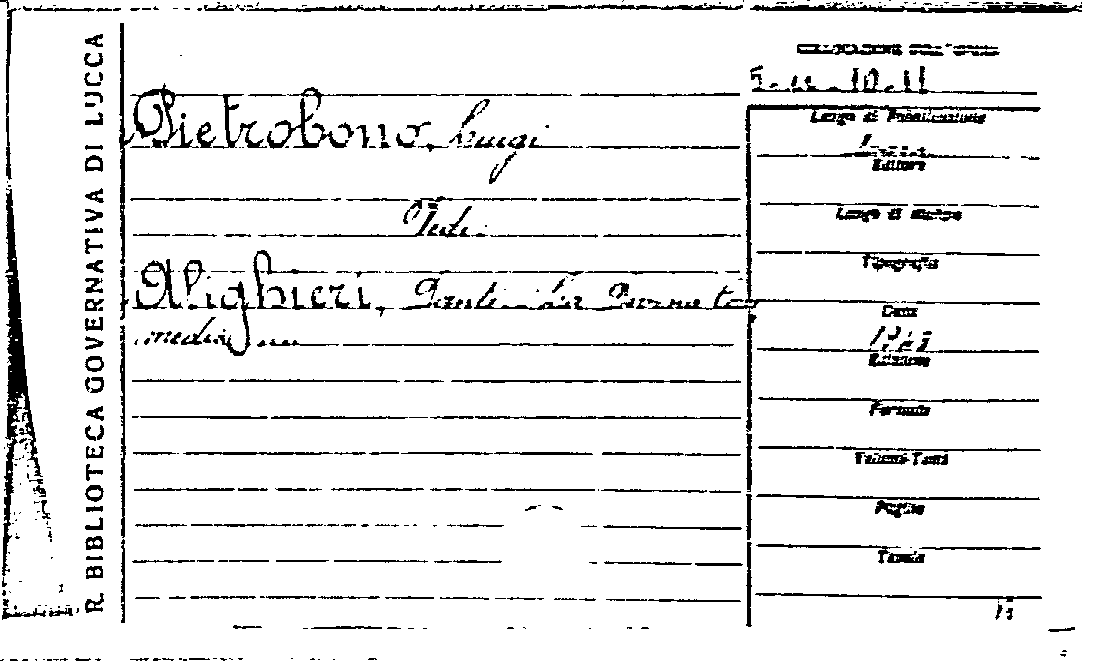 R. BIBLIOTECA GOVERNATIVA DI LUCCA
COLLOCAZIONE DELL'OPERA
Pietrobono, Luigi
Vedi:
Alighieri, Dante - La Divina Com
media
Luogo di Pubblicazione
Editore
Luogo di stampa
Tipografia
Data
Edizione
Formato
Volumi-Tomi
Pagine
Tavole